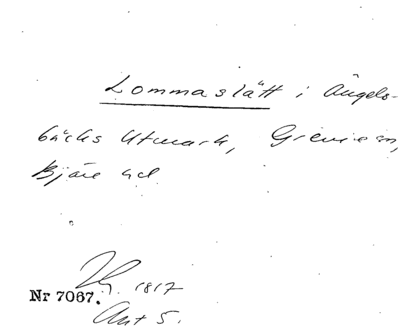 Lommaslätt i Ängels-
bäcks Utmark, Grevie sn,
Bjäre hd
1817
Nr 7067.
Akt 5.